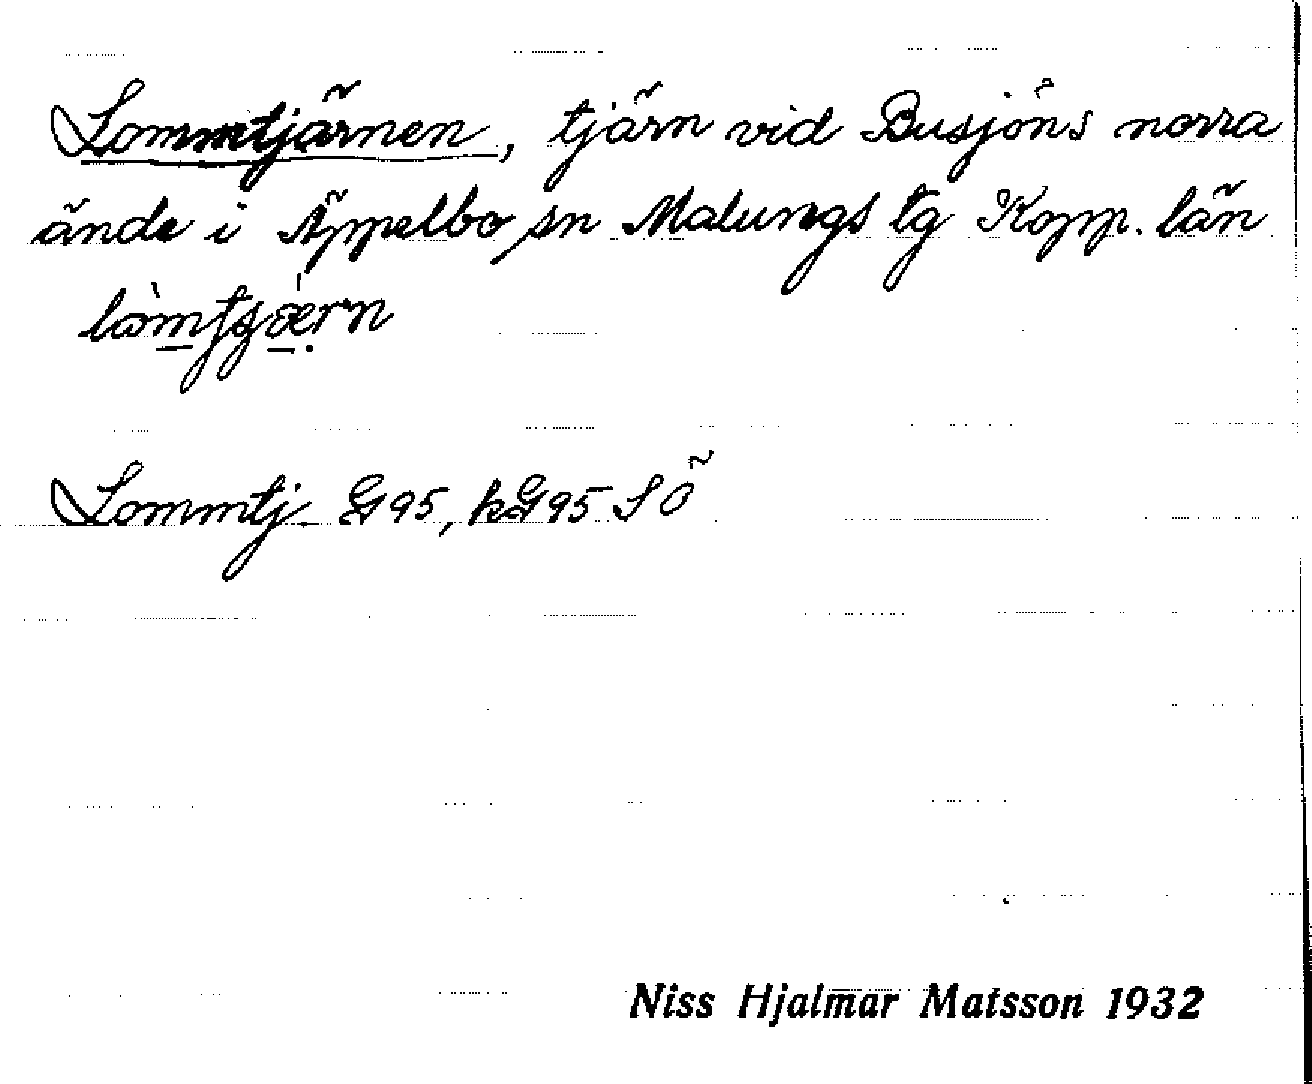 Lommtjärnen, tjärn vid Busjöns norra
ände i Äppelbo sn Malungs tg Kopp. län
Lommtj G95, kG95 SÖ
Niss Hjalmar Matsson 1932